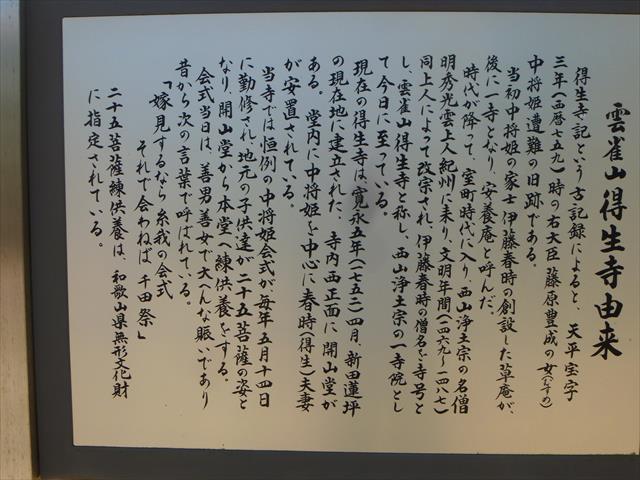 雲雀山得生寺由来
得生寺記という古記録によると、天平宝字
三年(西暦七五九)時の右大臣藤原豊成の女(むすめ)
中将姫遭難の旧跡である。
当初中将姫の家士伊藤春時の創設した草庵が、
後に一寺となり、安養庵と呼んだ。
時代が降って、室町時代に入り、西山浄土宗の名僧
明秀光雲上人紀州に来り、文明年間(一四六九~一四八七)
同上人によって改宗され、伊藤春時の僧名を寺号と
し、雲雀山得生寺と称し、西山浄土宗の一寺院とし
て今日に至っている。
現在の得生寺は寛永五年(一七五二)四月、新田蓮坪
の現在地に建立された、寺内西正面に開山堂が
ある。堂内に中将姫を中心に春時(得生)夫妻
が安置されている。
当寺では恒例の中将姫会式が毎年五月十四日
に勤修され、地元の子供達が二十五菩薩の姿と
なり、開山堂から本堂へ練供養をする。
会式当日は、善男善女で大へんな賑いであり
昔から次の言葉で呼ばれている。
「嫁見するなら糸我の会式
それで会わねば千田祭」
二十五菩薩練供養は、和歌山県無形文化財
に指定されている。